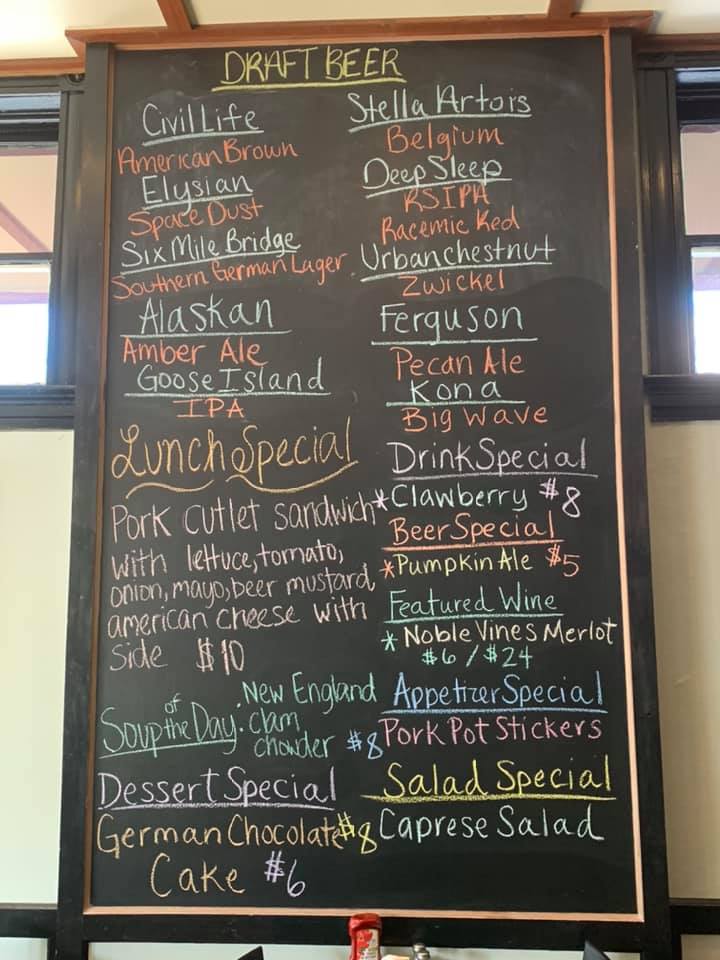 DRAFT BEER
Civil Life
American Brown
Elysian
Space Dust
Six Mile Bridge
Southern German Lager
Alaskan
Amber Ale
Goose Island
IPA
Stella Artois
Belgium
Deep Sleep
RSIPA
Racemic Red
Urbanchestnut
Zwickel
Ferguson
Pecan Ale
Kona
Big Wave
Lunch Special
Pork cutlet sandwich
with lettuce, tomato,
onion, mayo, beer mustard
american cheese with
side $10
Drink Special
*Clawberry $8
Beer Special
*Pumpkin Ale $5
Featured Wine
* Noble Vines Merlot
$6 / $24
Soup of the Day: New England
clam
chowder $8
Appetizer Special
Pork Pot Stickers
Dessert Special
German Chocolate
Cake $6
Salad Special
$8 Caprese Salad